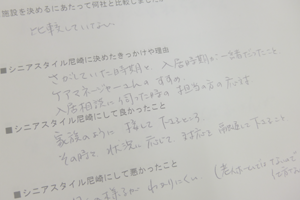 施設を決めるにあたって何社と比較しました
比較していない
■シニアスタイル尼崎に決めたきっかけや理由
さがしていた時期と、入居時期が一緒だったこと
ケアマネージャーさんのすすめ
入居相談に伺った時の担当の方の対応
■シニアスタイル尼崎にして良かったこと
家族のように接して下さるところ
その時々状況に応じて対応して下さること
■シニアスタイル尼崎にして悪かったこと
様子がわかりにくい